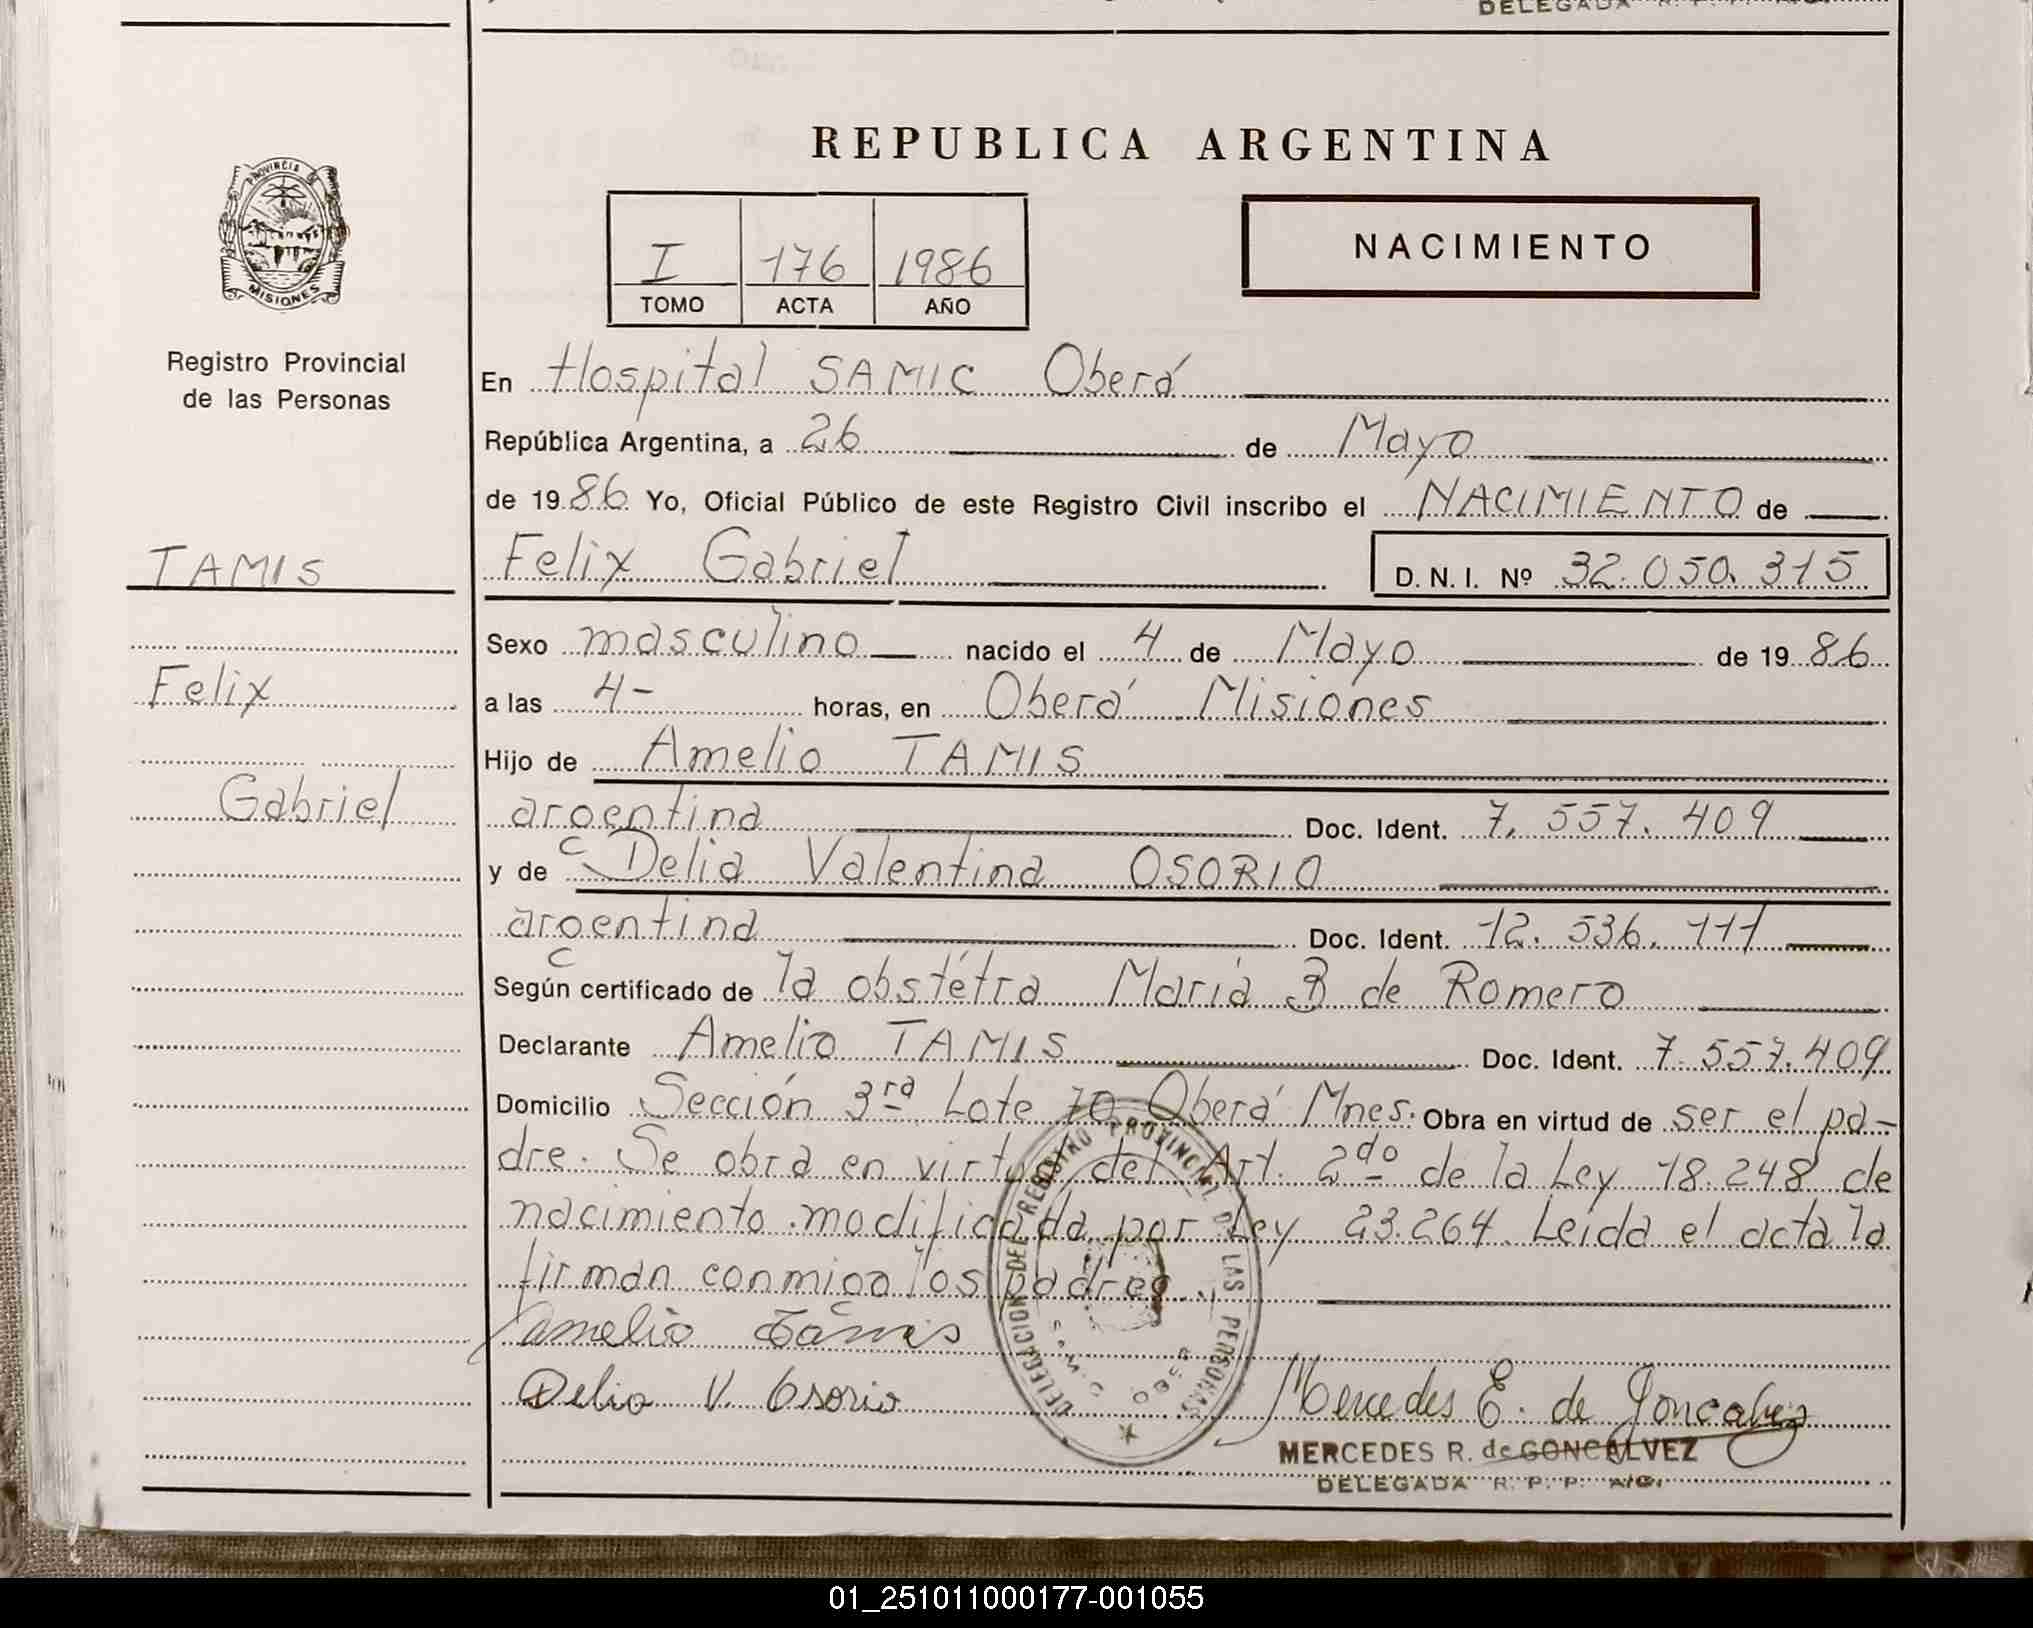 DELEGADA
REPUBLICA ARGENTINA
PROVINCIA D
MISIONES
Registro Provincial
de las Personas
I 176 1986
TOMO ACTA AÑO
NACIMIENTO
En Hospital SAMIC Oberá
República Argentina, a 26 de Mayo
de 1986 Yo, Oficial Público de este Registro Civil inscribo el NACIMIENTO de
TAMIS
Felix Gabriel D. N. I. Nº 32.050.315
Sexo masculino nacido el 4 de Mayo de 1986
Felix
a las 4- horas, en Oberá Misiones
Hijo de Amelio TAMIS
Gabriel
argentina Doc. Ident. 7.557.409
y de Delia Valentina OSORIO
argentina Doc. Ident. 12.536.111
Según certificado de la obstétra María B de Romero
Declarante Amelio TAMIS Doc. Ident. 7.557.409
Domicilio Sección 3ra Lote 70 Oberá Mnes. Obra en virtud de ser el pa-
dre. Se obra en virtud del Art. 2do de la Ley 18.248 de
nacimiento modificada por Ley 23.264. Leida el acta la
firman conmigo los padres.
Amelio Tamis
Delia V. Osorio
Mercedes E. de Goncalvez
DELEGACION DEL REGISTRO PROVINCIAL D LAS PERSONAS
MERCEDES R. de GONCALVEZ
DELEGADA R. P. P. A/C.
01_251011000177-001055